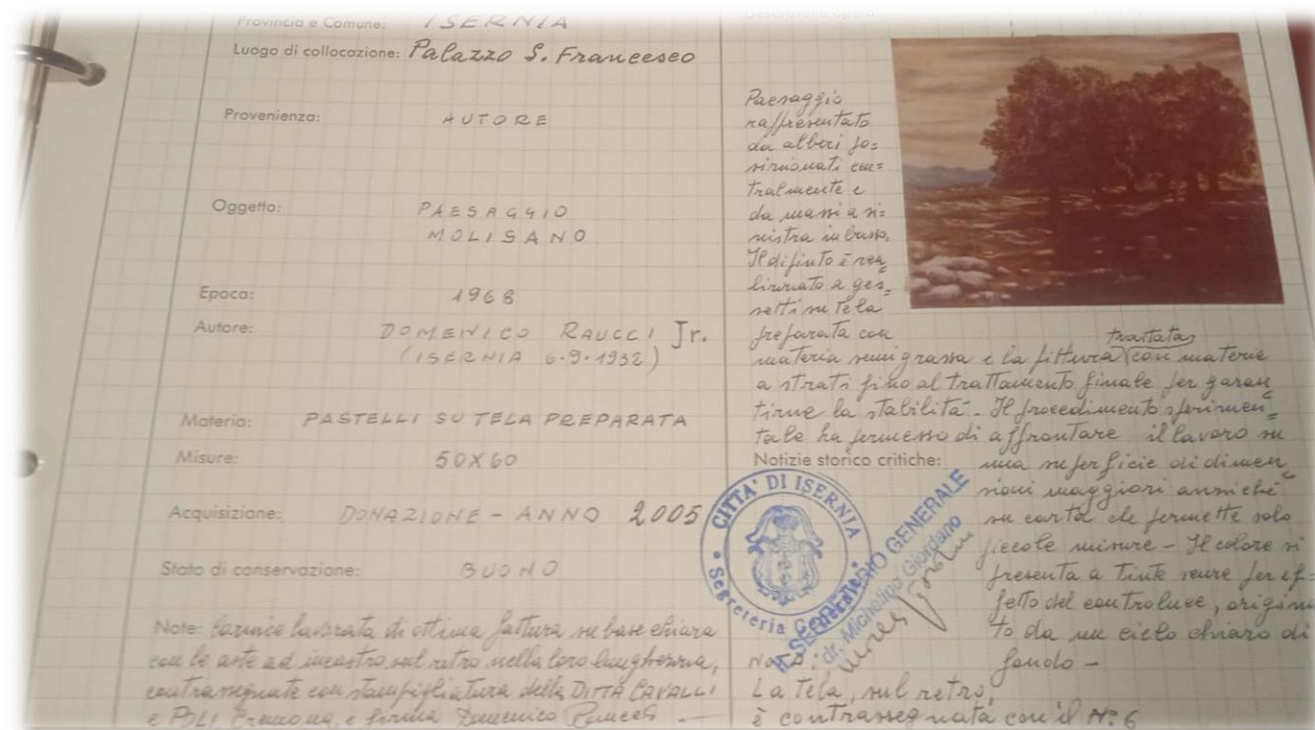 Provincia e Comune: ISERNIA
Luogo di collocazione: Palazzo S. Francesco
Provenienza: AUTORE
Oggetto: PAESAGGIO
MOLISANO
Epoca: 1968
Autore: DOMENICO RAUCCI Jr.
(ISERNIA 6.9.1932)
Materia: PASTELLI SU TELA PREPARATA
Misure: 50X60
Acquisizione: DONAZIONE - ANNO 2005
Stato di conservazione: BUONO
Note: Cornice lavorata di ottima fattura su base chiara
con le aste ad incastro sul retro nella loro lunghezza,
contrassegnate con stampigliatura della DITTA CAVALLI
e POLI Cremona, e firma Domenico Raucci . -
Descrizione opera:
Paesaggio
raffresentato
da alberi po=
sizionati cen=
tralmente e
da massi a si=
nistra in basso.
Il dipinto è rea
lizzato a ges=
setti su tela
preparata con
trattata
materia semigrassa e la pittura con materie
a strati fino al trattamento finale per garan
tirne la stabilità - Il procedimento sperimen=
tale ha permesso di affrontare il lavoro su
Notizie storico critiche: una superficie di dimen
sioni maggiori anniché
su carta che permette solo
piccole misure - Il colore si
presenta a tinte scure per ef=
fetto del controluce, origina
to da un cielo chiaro di
fondo -
CITTA' DI ISERNIA
Segreteria Generale
IL SEGRETARIO GENERALE
dr. Michelino Giordano
La tela, sul retro,
è contrassegnata con il N: 6